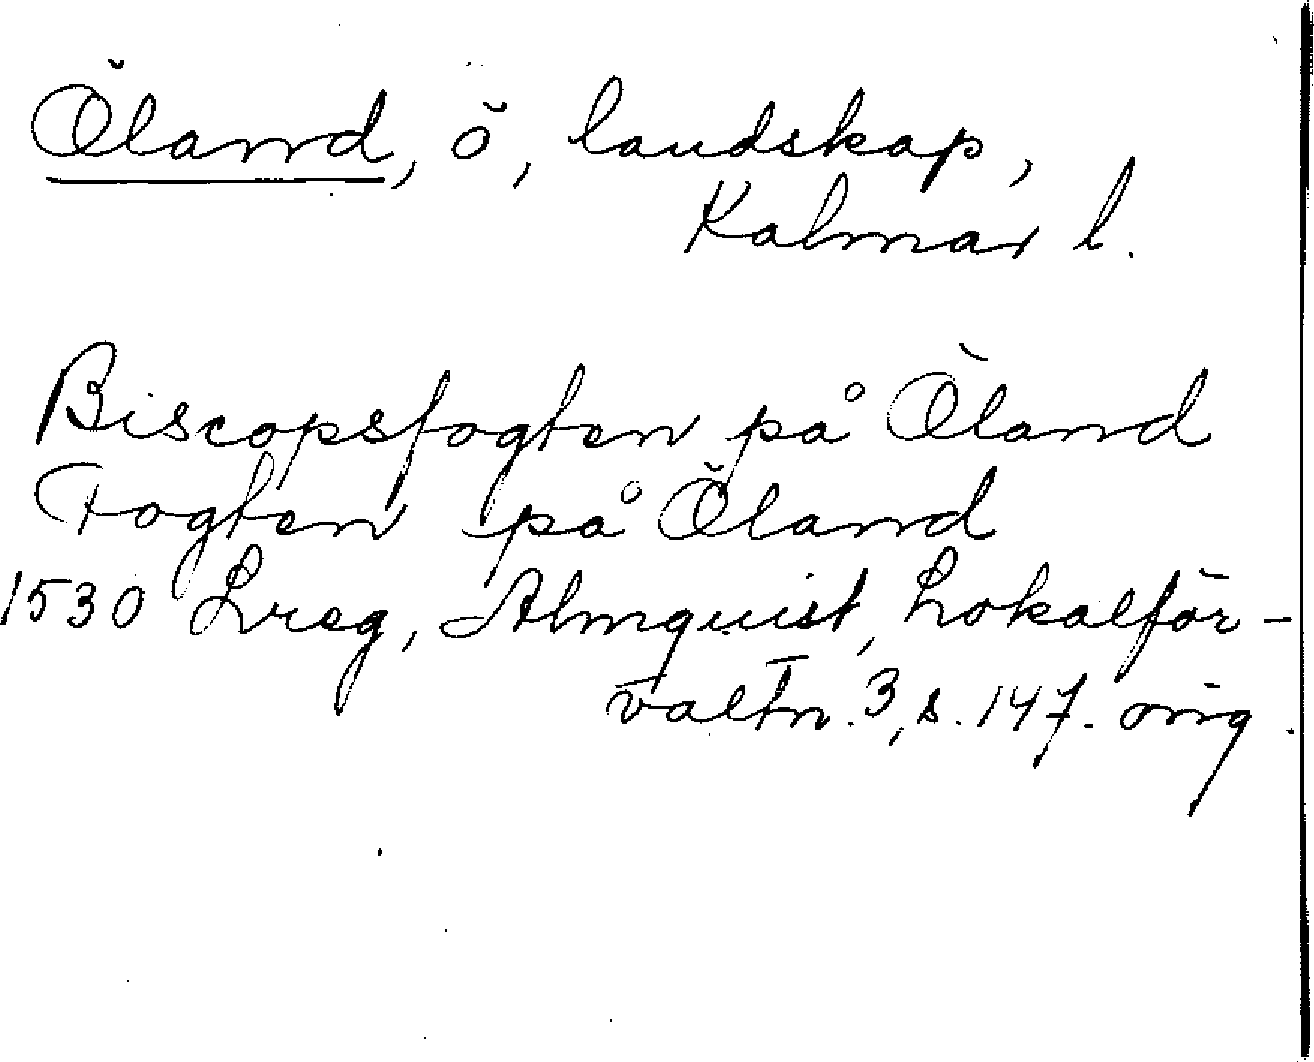 Öland, ö, landskap,
Kalmar l.
Biscopsfogten på Öland
Fogten på Öland
1530 Lreg, Almquist, Lokalför-
valtn. 3, s. 147. orig.